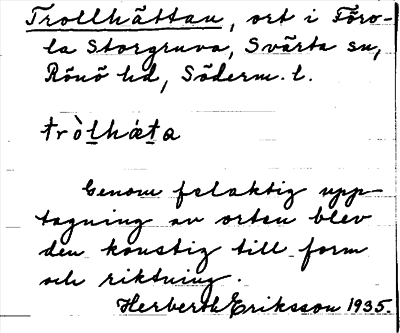 Trollhättan, ort i Föro-
la Storgruva, Svärta sn,
Rönö hd, Söderm. l.
tròl̲hǽt̲a
Genom felaktig upp-
tagning av orten blev
den konstig till form
och riktning.
Herberth Eriksson 1935.